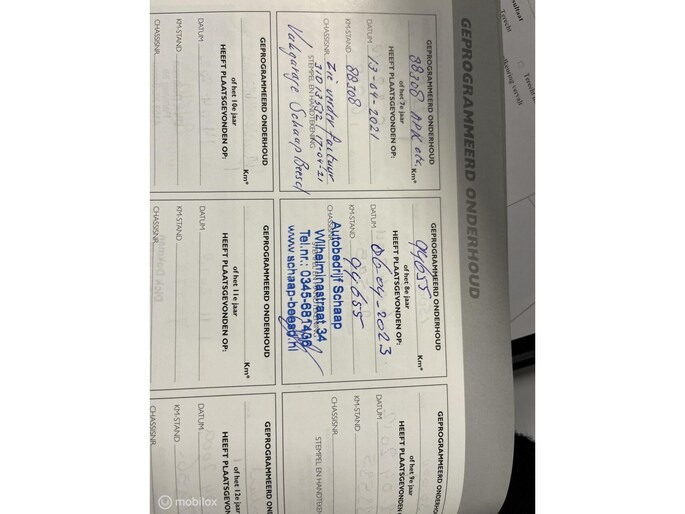 GEPROGRAMMEERD ONDERHOUD
GEPROGRAMMEERD ONDERHOUD
88308 APK etc, Km*
of het 7e jaar
HEEFT PLAATSGEVONDEN OP:
DATUM 13-04-2021
KM-STAND 88308
CHASSISNR. Zie verder factuur
STEMPEL EN HANDTEKENING
Vakgarage Schaap Beesd
GEPROGRAMMEERD ONDERHOUD
94655 Km*
of het 8e jaar
HEEFT PLAATSGEVONDEN OP:
DATUM 06-04-2023
KM-STAND 94655
CHASSISNR.
Autobedrijf Schaap
Wilhelminastraat 34
Tel.nr.: 0345-681438
www.schaap-beesd.nl
GEPROGRAMMEERD ONDERHOUD
of het 9e jaar
HEEFT PLAATSGEVONDEN
DATUM
KM-STAND
CHASSISNR.
STEMPEL EN HANDTEKEN
GEPROGRAMMEERD ONDERHOUD
Km*
of het 10e jaar
HEEFT PLAATSGEVONDEN OP:
DATUM
KM-STAND
CHASSISNR.
GEPROGRAMMEERD ONDERHOUD
Km*
of het 11e jaar
HEEFT PLAATSGEVONDEN OP:
DATUM
KM-STAND
CHASSISNR.
GEPROGRAMMEERD ONDER
of het 12e jaar
HEEFT PLAATSGEVON
DATUM
KM-STAND
CHASSISNR.
mobilox